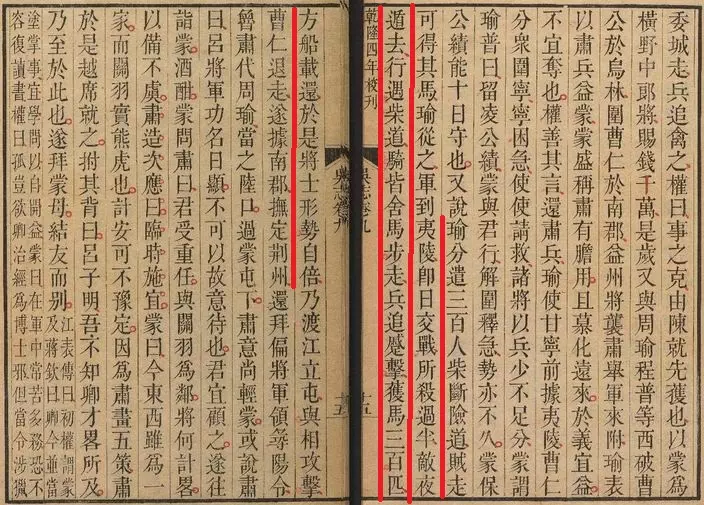 委城走兵追禽之權曰事之克由陳就先獲也以蒙爲
橫野中郎將賜錢千萬是歲又與周瑜程普等西破曹
公於烏林圍曹仁於南郡益州將襲肅舉軍來附瑜表
以肅兵益蒙蒙盛稱肅有膽用且慕化遠來於義宜益
不宜奪也權善其言還肅兵瑜使甘寧前據夷陵曹仁
分衆圍寧寧困急使使請救諸將以兵少不足分蒙謂
瑜普曰留淩公績蒙與君行解圍釋急勢亦不久蒙保
公績能十日守也又說瑜分遣三百人柴斷險道賊走
可得其馬瑜從之軍到夷陵卽日交戰所殺過半敵夜
遁去行遇柴道騎皆舍馬步走兵追蹙擊獲馬三百匹
乾隆四年校刊
吳志卷九
十五
方船載還於是將士形勢自倍乃渡江立屯與相攻擊
曹仁退走遂據南郡撫定荊州還拜偏將軍領尋陽令
魯肅代周瑜當之陸口過蒙屯下肅意尚輕蒙或說肅
曰呂將軍功名日顯不可以故意待也君宜顧之遂往
詣蒙酒酣蒙問肅曰君受重任與關羽爲鄰將何計畧
以備不虞肅造次應曰臨時施宜蒙曰今東西雖爲一
家而關羽實熊虎也計安可不豫定因爲肅畫五策肅
於是越席就之拊其背曰呂子明吾不知卿才畧所及
乃至於此也遂拜蒙母結友而別
江表傳曰初權謂蒙
及蔣欽曰卿今並當
塗掌事宜學問以自開益蒙曰在軍中常苦多務恐不
容復讀書權曰孤豈欲卿治經爲博士邪但當令涉獵